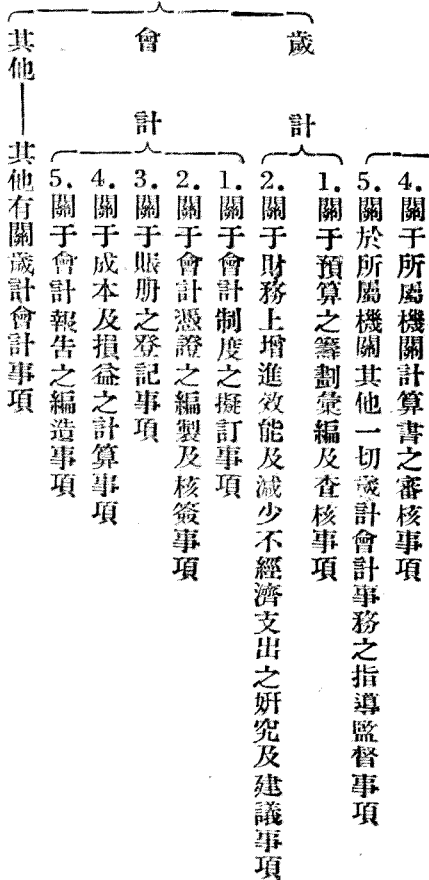 4. 關于所屬機關計算書之審核事項
5. 關於所屬機關其他一切歲計會計事務之指導監督事項
歲計
1. 關于預算之籌劃彙編及查核事項
2. 關于財務上增進效能及減少不經濟支出之研究及建議事項
會計
1. 關于會計制度之擬訂事項
2. 關于會計憑證之編製及核簽事項
3. 關于賬册之登記事項
4. 關于成本及損益之計算事項
5. 關于會計報告之編造事項
其他——其他有關歲計會計事項